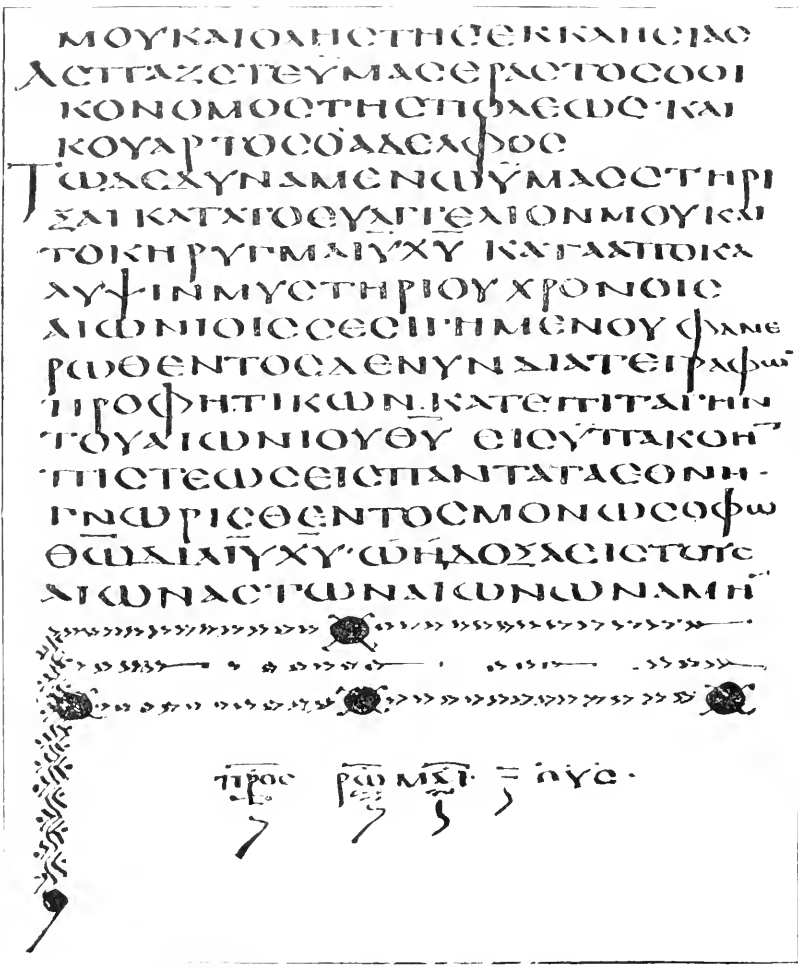 ΜΟΥΚΑΙΟΛΗϹΤΗϹΕΚΚΛΗϹΙΑϹ
ΑϹΠΑΖΕΤΕΫΜΑϹΕΡΑϹΤΟϹΟΟΙ
ΚΟΝΟΜΟϹΤΗϹΠΟΛΕΩϹ·ΚΑΙ
ΚΟΥΑΡΤΟϹΟΑΔΕΛΦΟϹ
ΤΩΔΕΔΥΝΑΜΕΝΩΫΜΑϹϹΤΗΡΙ
ΞΑΙΚΑΤΑΤΟΕΥΑΓΓΕΛΙΟΝΜΟΥΚΑΙ
ΤΟΚΗΡΥΓΜΑΙ̅Υ̅Χ̅Υ̅ ΚΑΤΑΑΠΟΚΑ
ΛΥΨΙΝΜΥϹΤΗΡΙΟΥΧΡΟΝΟΙϹ
ΑΙΩΝΙΟΙϹϹΕϹΙΓΗΜΕΝΟΥΦΑΝΕ
ΡΩΘΕΝΤΟϹΔΕΝΥΝΔΙΑΤΕΓΡΑΦΩ̅
ΠΡΟΦΗΤΙΚΩΝ·ΚΑΤΕΠΙΤΑΓΗΝ
ΤΟΥΑΙΩΝΙΟΥΘ̅Υ̅ ΕΙϹΫΠΑΚΟΗ̅
ΠΙϹΤΕΩϹΕΙϹΠΑΝΤΑΤΑΕΘΝΗ·
ΓΝΩΡΙϹΘΕΝΤΟϹΜΟΝΩϹΟΦΩ
Θ̅Ω̅ΔΙΑΙ̅Υ̅Χ̅Υ̅·ΩΗΔΟΞΑΕΙϹΤΟΥϹ
ΑΙΩΝΑϹΤΩΝΑΙΩΝΩΝΑΜΗ̅
ΠΡΟϹ ΡΩΜΑΙΟΥϹ·